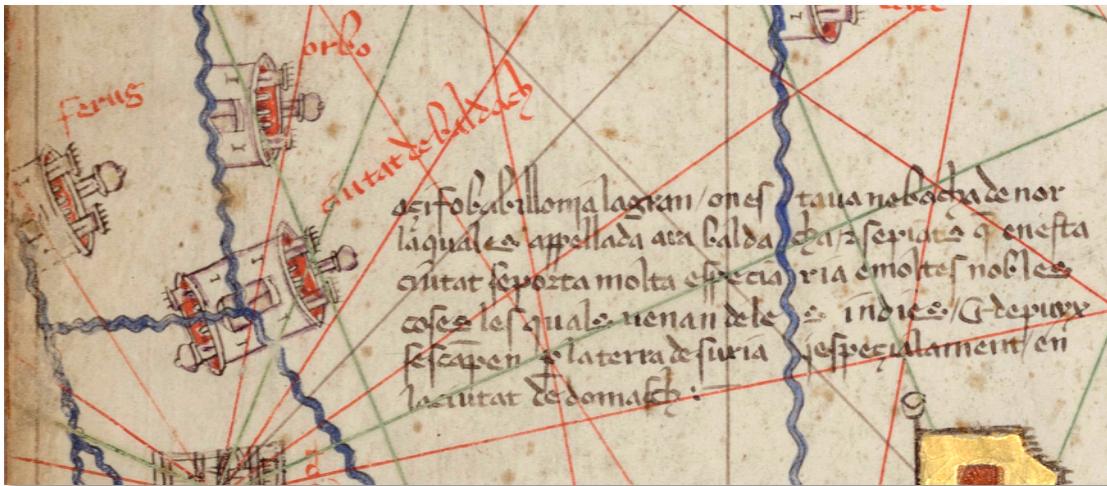 orbo
ferug
ciutat de baldach
açi fo babillonia la gran on es taua nabocha de nor
la qual es appellada ara balda cha sapiats q en esta
ciutat se porta molta especia ria e moltes nobles
coses les quals uenan de le s indies
sescapen p la terra de suria especialament en
la ciutat de domasch :